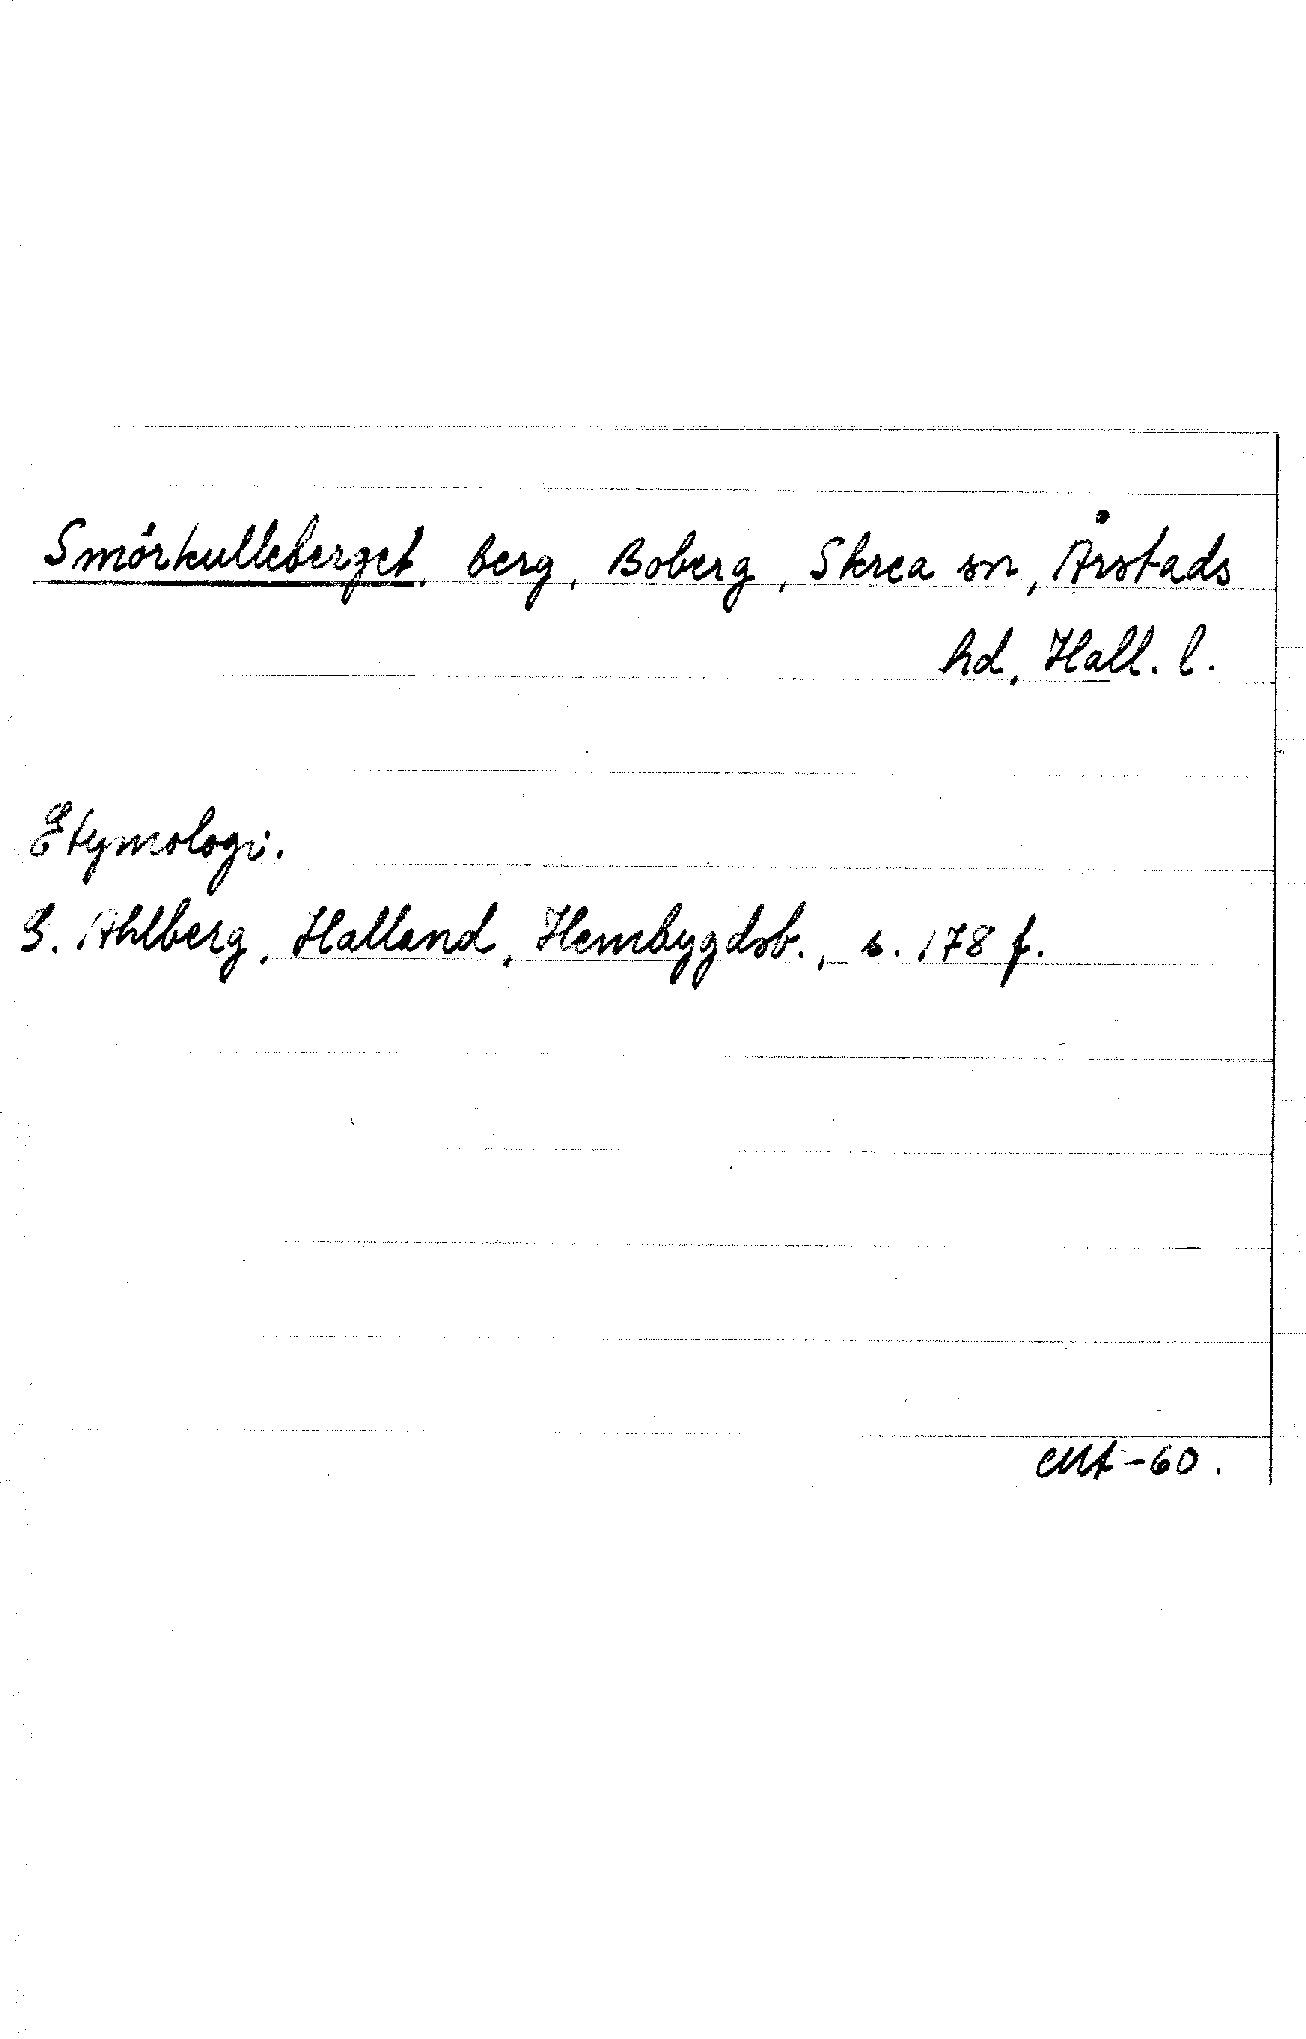 Smörkulleberget, berg, Boberg, Skrea sn, Årstads
hd, Hall. l.
Etymologi.
G. Ahlberg, Halland, Hembygdsb., s. 178 f.
-60.